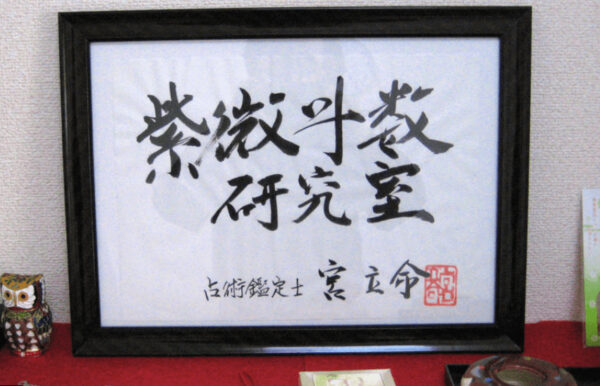 紫微斗数
研究室
占術鑑定士 宮立命